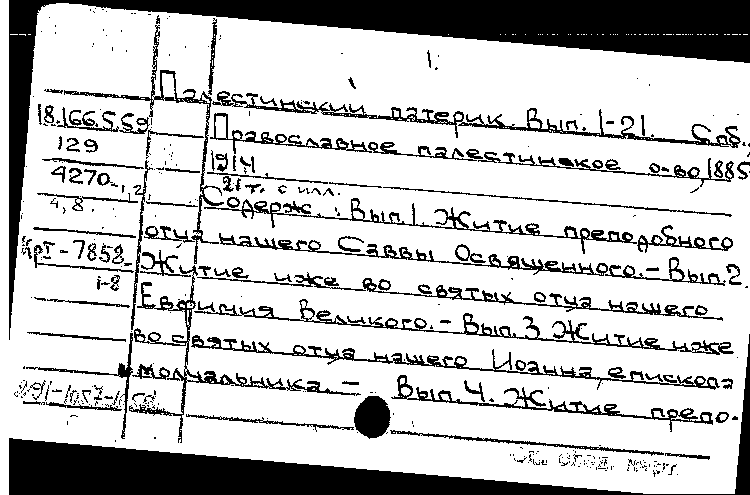 1.
Палестинский патерик. Вып. 1-21. Спб.,
18.166.5.59 Православное палестинское о-во, 1885-
129 1914.
21 т. с илл.
4270-1,2 Содерж.: Вып. 1. Житие преподобного
4, 8. отца нашего Саввы Освященного.- Вып. 2.
КрI-7858 Житие иже во святых отца нашего
1-8 Евфимия Великого.- Вып. 3 Житие иже
во святых отца нашего Иоанна, епископа
молчальника. - Вып. 4. Житие препо-
См. след. карт.